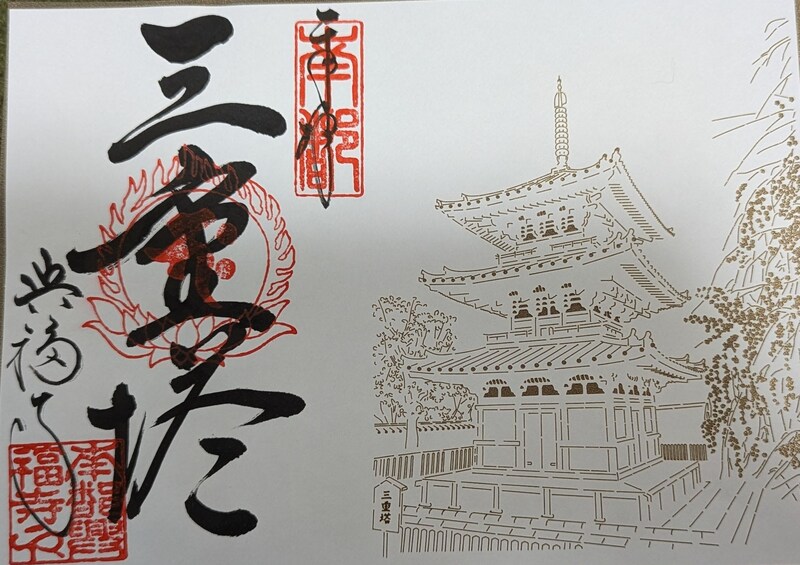 奉拝
三重塔
興福寺
南都
南都興福寺印
三重塔